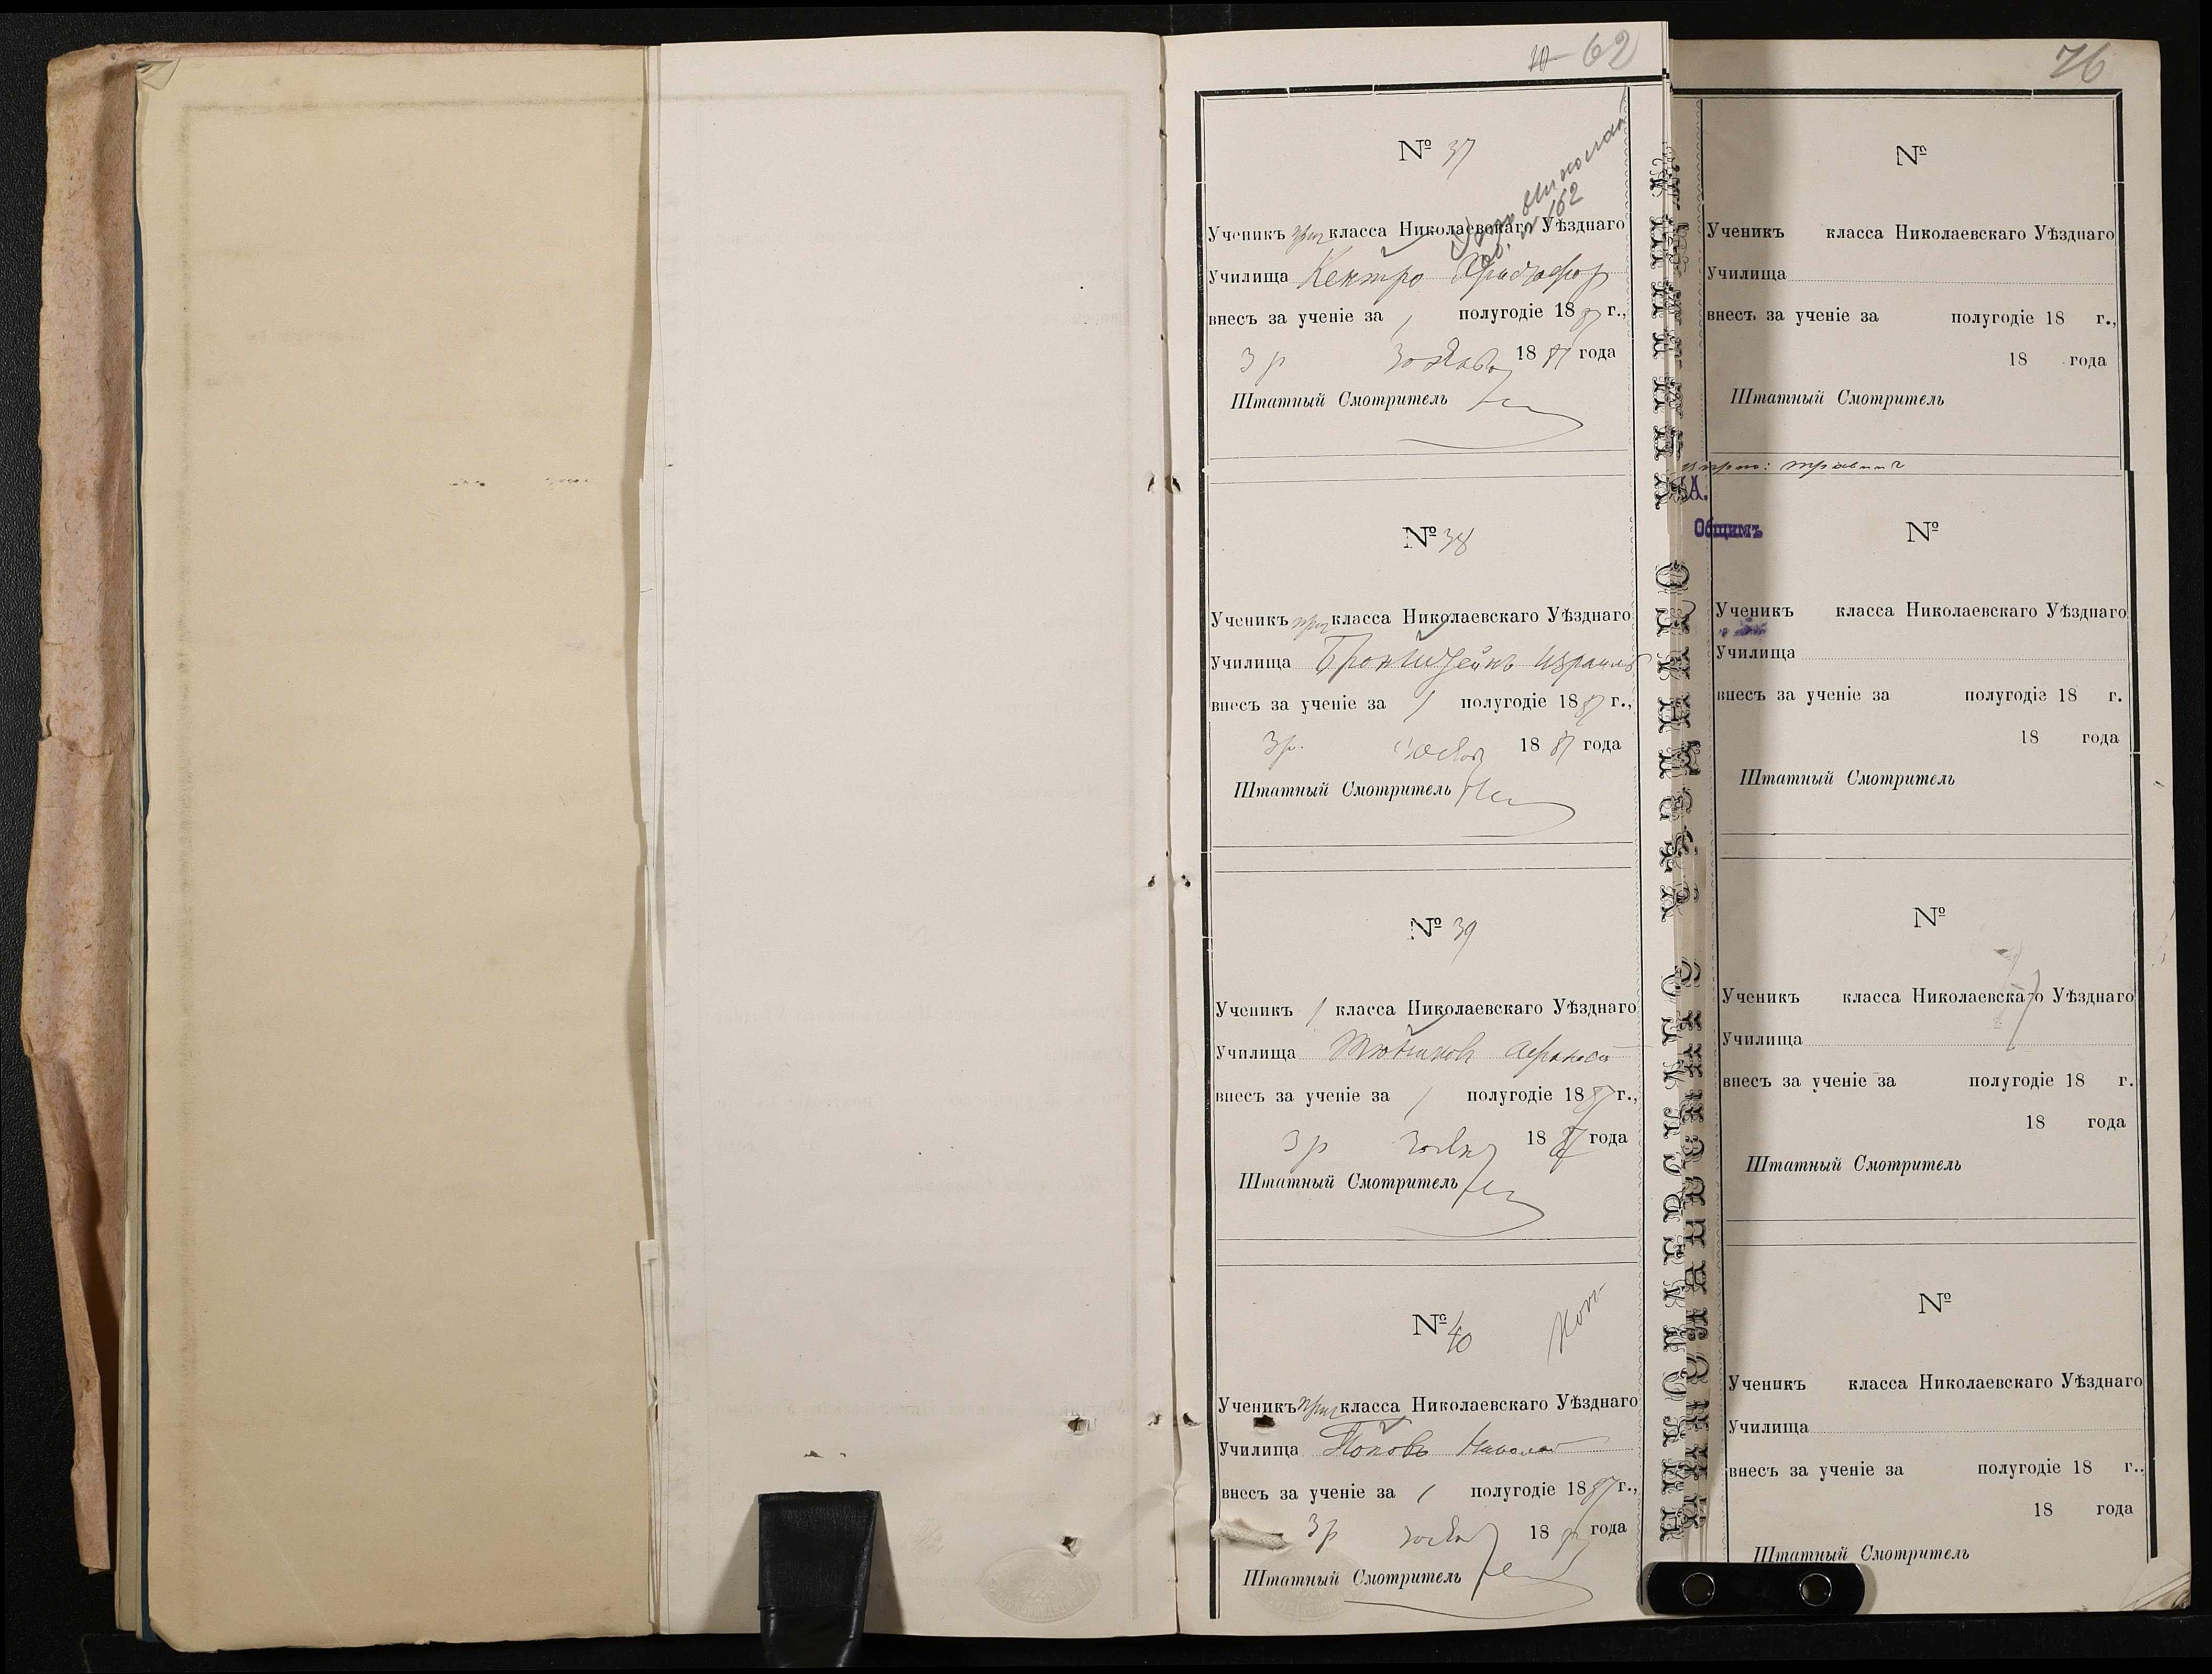 62
№ 37
Ученикъ приг класса Николаевскаго Уѣзднаго
Училища Кентро Христофор
внесъ за ученіе за 1 полугодіе 1887 г.,
3 р 30 Янв 1887 года
Штатный Смотритель
№ 38
Ученикъ приг класса Николаевскаго Уѣзднаго
Училища Бронштейнъ Израиль
внесъ за ученіе за 1 полугодіе 1887 г.,
3 р. 30 Янв 1887 года
Штатный Смотритель
№ 39
Ученикъ 1 класса Николаевскаго Уѣзднаго
Училища
внесъ за ученіе за 1 полугодіе 1887 г.,
3 р 30 Янв 1887 года
Штатный Смотритель
№ 40
Ученикъ приг класса Николаевскаго Уѣзднаго
Училища Поповъ Николай
внесъ за ученіе за 1 полугодіе 1887 г.,
3 р 30 Янв 1887 года
Штатный Смотритель
76
№
Ученикъ класса Николаевскаго Уѣзднаго
Училища
внесъ за ученіе за полугодіе 18 г.,
18 года
Штатный Смотритель
Общимъ
№
Ученикъ класса Николаевскаго Уѣзднаго
Училища
внесъ за ученіе за полугодіе 18 г.
18 года
Штатный Смотритель
№
Ученикъ класса Николаевскаго Уѣзднаго
Училища
внесъ за ученіе за полугодіе 18 г.
18 года
Штатный Смотритель
№
Ученикъ класса Николаевскаго Уѣзднаго
Училища
внесъ за ученіе за полугодіе 18 г..
18 года
Штатный Смотритель